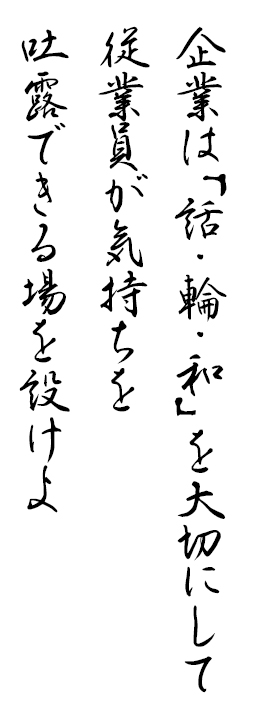 企業は「話・輪・和」を大切にして
従業員が気持ちを
吐露できる場を設けよ